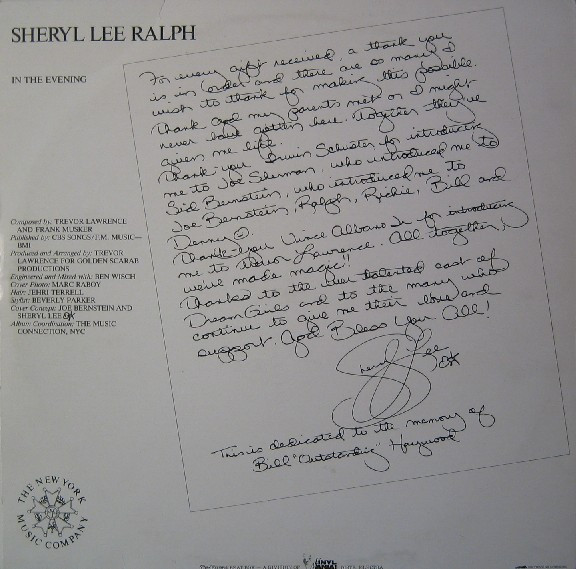 SHERYL LEE RALPH
IN THE EVENING
For every gift received, a thank you
is in order and there are so many I
wish to thank for making this possible.
Thank God my parents met or I might
never have gotten here. Together they've
given me life.
Thank-you Irwin Schuster for introducing
me to Joe Sherman, who introduced me to
Sid Bernstein, who introduced me to
Joe Bernstein, Ralph, Richie, Bill and
Denny
Thank-you Vince Albano Jr. for introducing
me to Trevor Lawrence. All together,
we've made magic!
Thanks to the talented cast of
DreamGirls and to the many who
continue to give me their love and
support. God Bless You All!
Sheryl Lee
This is dedicated to the memory of
Bill "Outstanding" Haywood
Composed by: TREVOR LAWRENCE
AND FRANK MUSKER
Published by: CBS SONGS/T.M. MUSIC—
BMI
Produced and Arranged by: TREVOR
LAWRENCE FOR GOLDEN SCARAB
PRODUCTIONS
Engineered and Mixed with: BEN WISCH
Cover Photo: MARC RABOY
Hair: JEHRI TERRELL
Stylist: BEVERLY PARKER
Cover Concept: JOE BERNSTEIN AND
SHERYL LEE
Album Coordination: THE MUSIC
CONNECTION, NYC
THE NEW YORK
MUSIC COMPANY
VINYL
MANIA